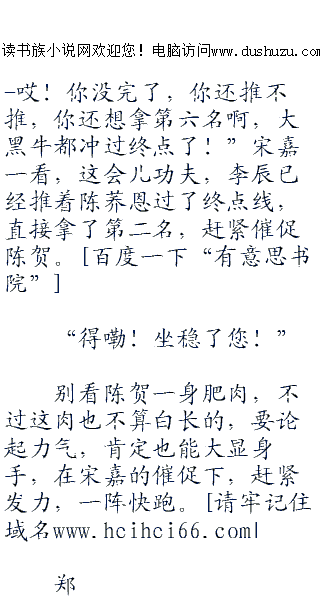 读书族小说网欢迎您！电脑访问www.dushuzu.com
-哎！你没完了，你还推不
推，你还想拿第六名啊，大
黑牛都冲过终点了！”宋嘉
一看，这会儿功夫，李辰已
经推着陈荞恩过了终点线，
直接拿了第二名，赶紧催促
陈贺。[百度一下“有意思书
院”]
“得嘞！坐稳了您！”
别看陈贺一身肥肉，不
过这肉也不算白长的，要论
起力气，肯定也能大显身
手，在宋嘉的催促下，赶紧
发力，一阵快跑。[请牢记住
域名www.hcihci66.com|
郑